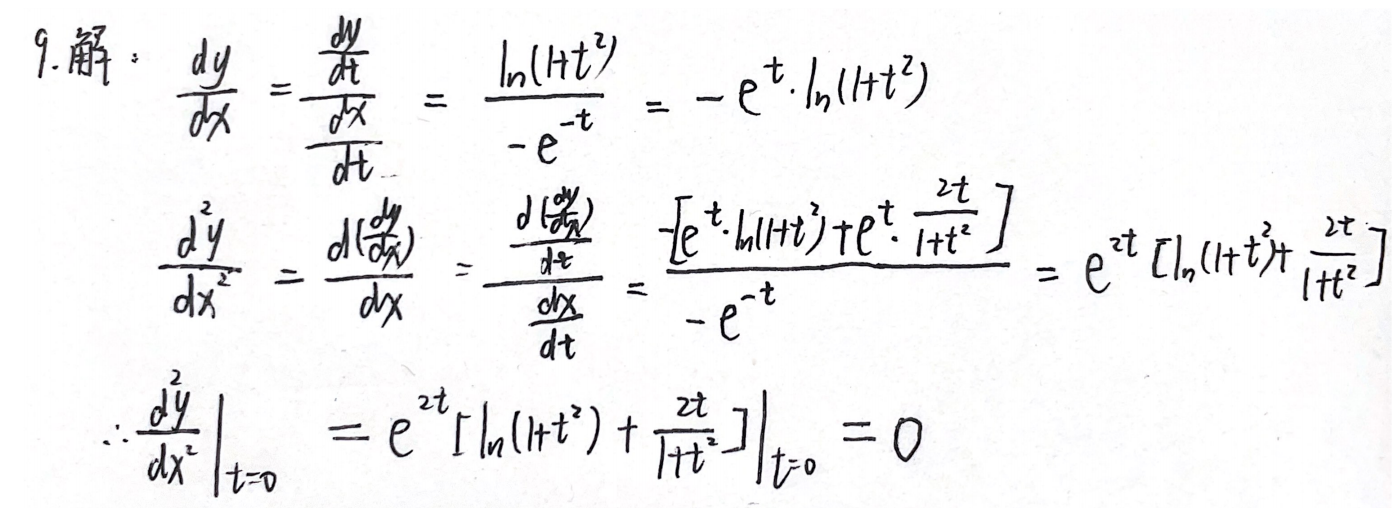 9.解: \frac{dy}{dx} = \frac{\frac{dy}{dt}}{\frac{dx}{dt}} = \frac{\ln(1+t^2)}{-e^{-t}} = -e^t \cdot \ln(1+t^2)
\frac{d^2y}{dx^2} = \frac{d(\frac{dy}{dx})}{dx} = \frac{\frac{d(\frac{dy}{dx})}{dt}}{\frac{dx}{dt}} = \frac{-[e^t \cdot \ln(1+t^2) + e^t \cdot \frac{2t}{1+t^2}]}{-e^{-t}} = e^{2t} [\ln(1+t^2) + \frac{2t}{1+t^2}]
∴ \frac{d^2y}{dx^2} |_{t=0} = e^{2t} [\ln(1+t^2) + \frac{2t}{1+t^2}] |_{t=0} = 0